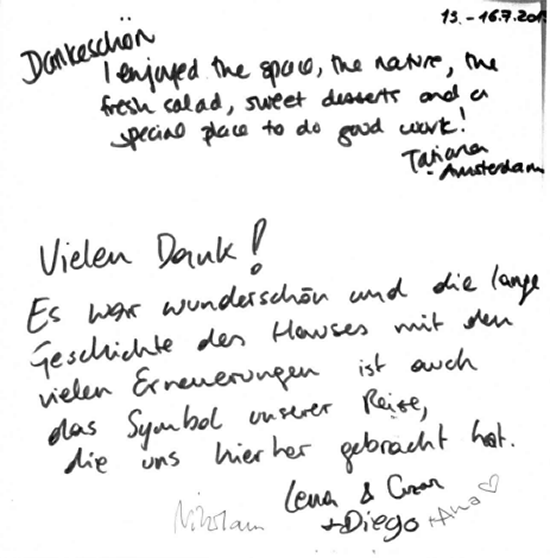 13. - 16.7.201
Dankeschön
I enjoyed the space, the nature, the
fresh salad, sweet desserts and a
special place to do good work!
Tatiana
- Amsterdam
Vielen Dank!
Es war wunderschön und die lange
Geschichte des Hauses mit den
vielen Erneuerungen ist auch
das Symbol unserer Reise,
die uns hierher gebracht hat.
Lena &
Nikolam +Diego +Ana ♡